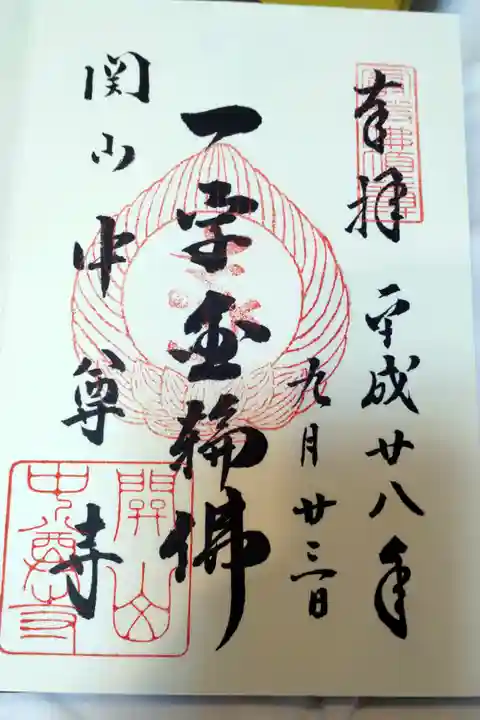 奉拝
平成廿八年
九月廿三日
一字金輪佛
関山中尊寺
關山
中尊寺